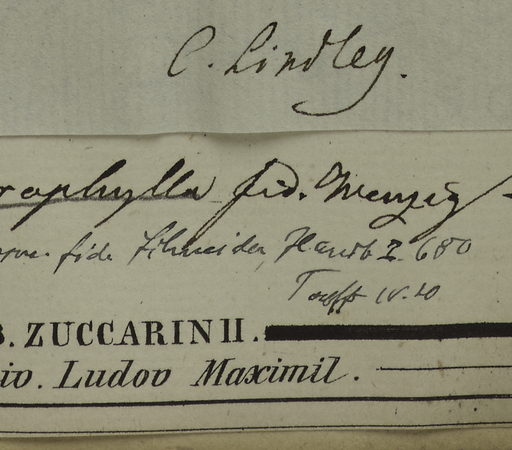 C. Lindley.
rophylla fid. Wenzig
fide Schneider, Handb I. 680
IV. 20
B. ZUCCARINII.
io. Ludov Maximil.